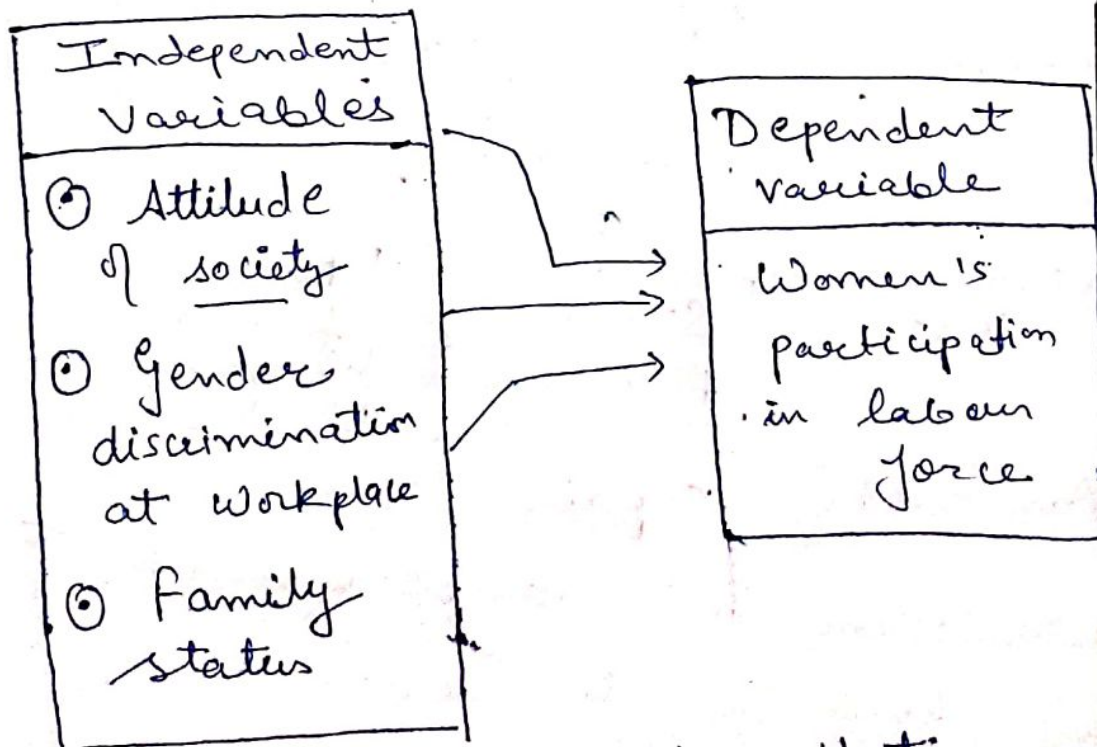 Independent
variables
Attitude
of society
Gender
discrimination
at workplace
Family
status
Dependent
variable
Women's
participation
in labour
force